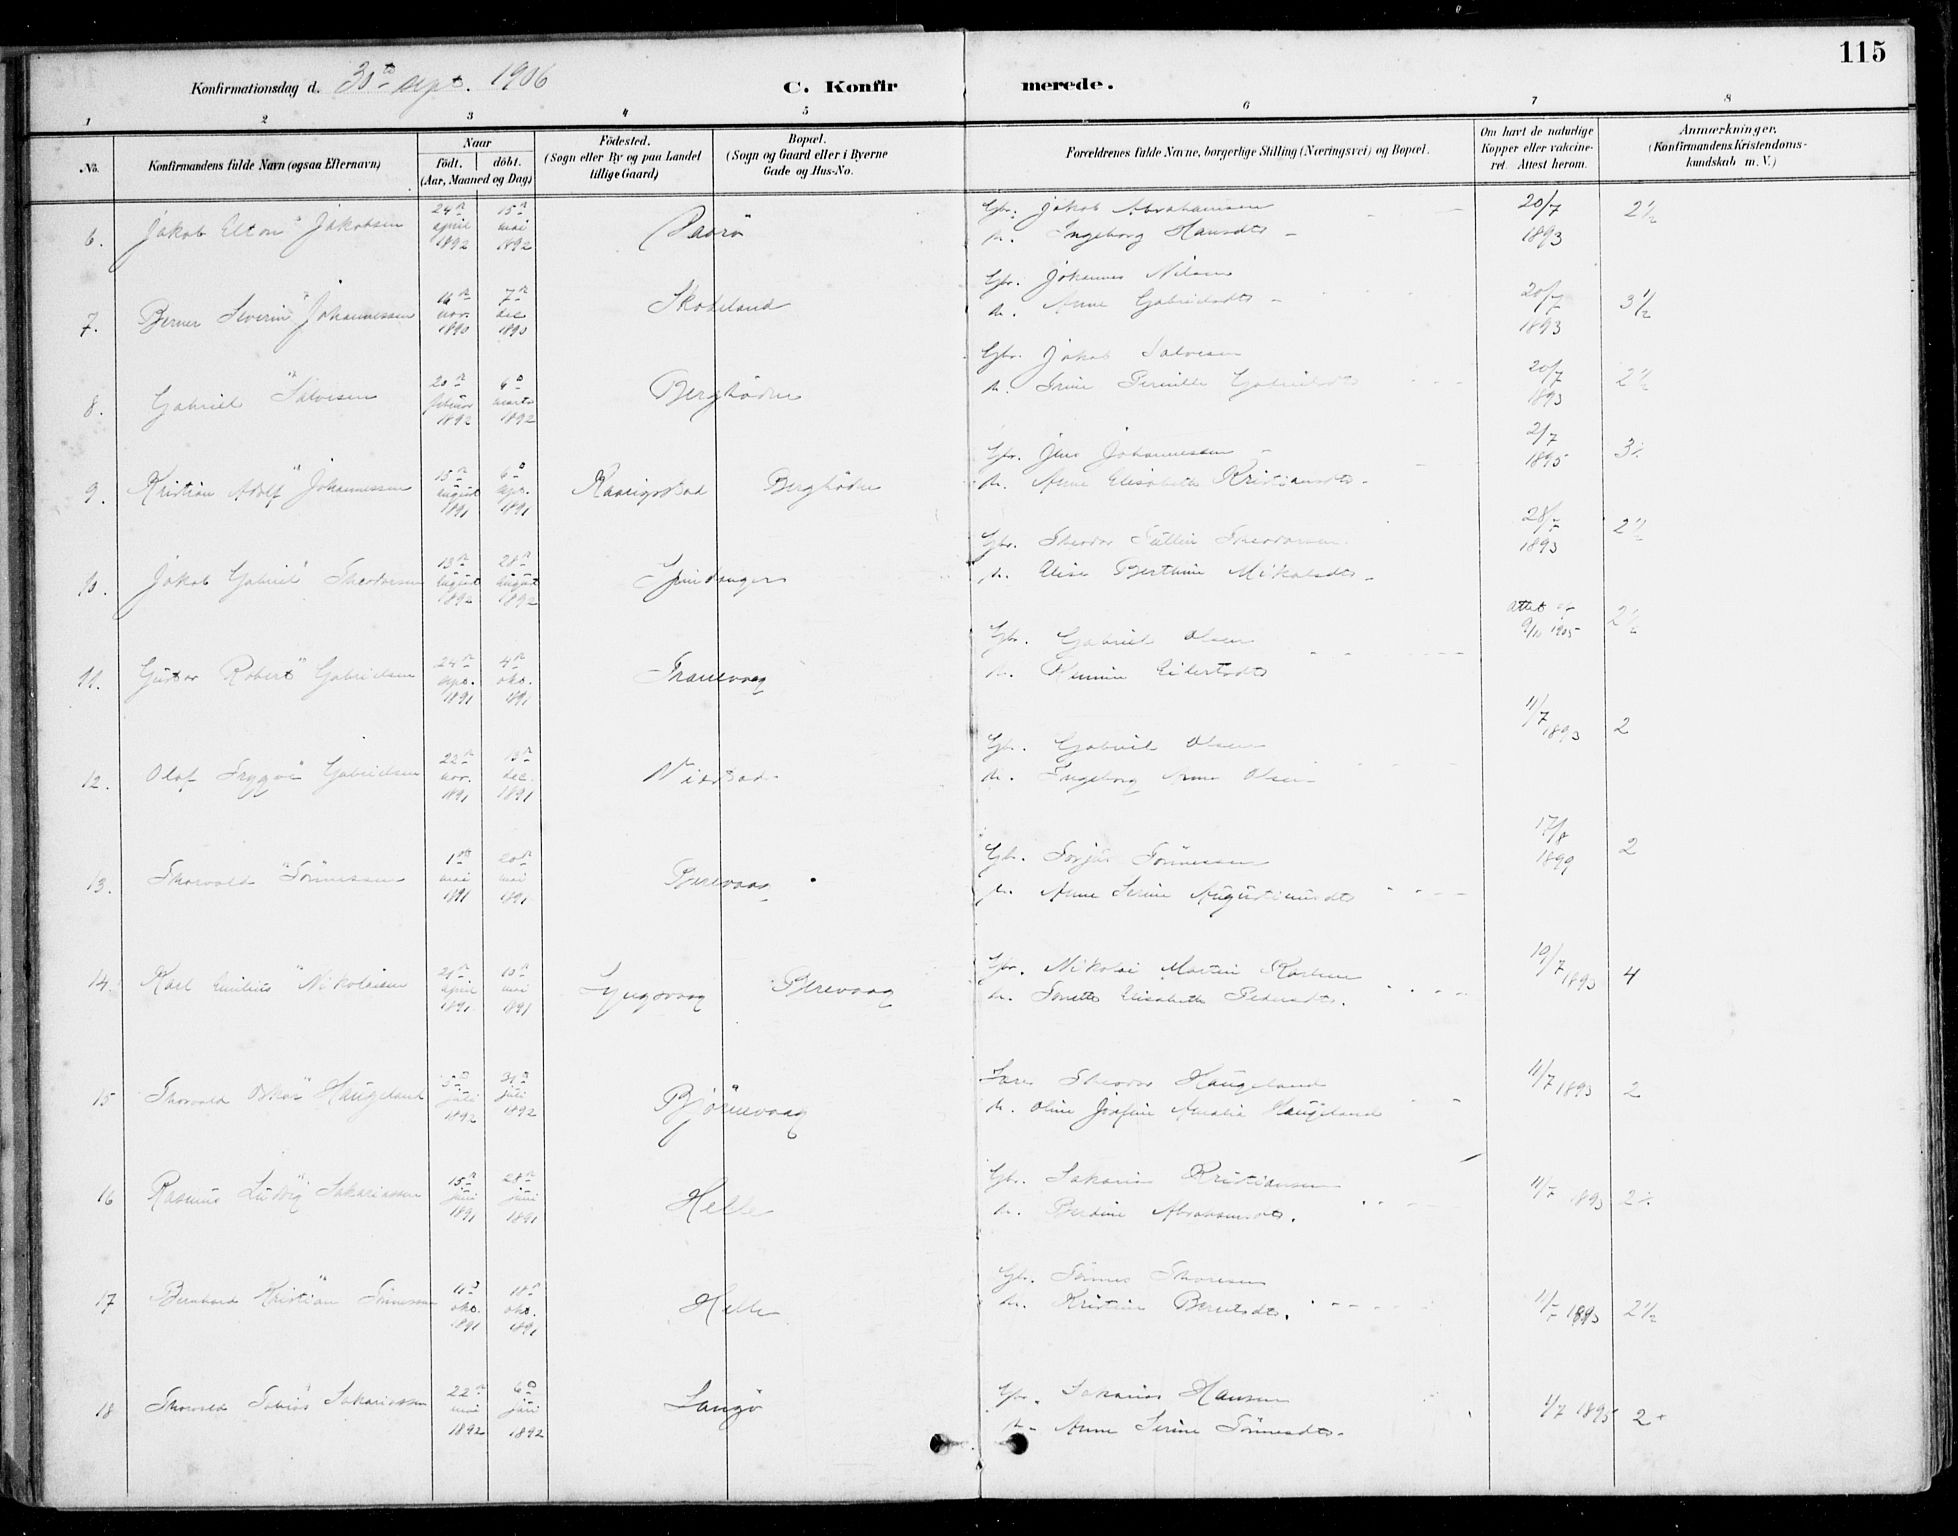 115
Konfirmationsdag d. 30te sept. 1906
C. Konfirmerede.
1 2 3 4 5 6 7 8
No. Konfirmandens fulde Navn (ogsaa Efternavn)
Naar
födt. döbt.
(Aar, Maaned og Dag)
Födested.
(Sogn eller By og paa Landet
tillige Gaard)
Bopæl.
(Sogn og Gaard eller i Byerne
Gade og Hus-No.
Forældrenes fulde Navne, borgerlige Stilling (Næringsvei) og Bopæl.
Om havt de naturlige
Kopper eller vakcine-
ret. Attest herom.
Anmærkninger.
(Konfirmandens Kristendoms-
kundskab m. V.)
6. Jakob Elton Jakobsen 24de april 1892 15de mai 1892
Gbr. Jakob Abrahamsen
h. Ingeborg Hansdtr
20/7 1893 2½
7. Berner Severin Johannessen 16de nov. 1890 7de dec 1890 Skodeland
Gbr. Johannes Nilsen
h. Anne Gabrielsdtr
20/7 1893 3½
8. Gabriel Salvesen 20de februar 1892 6te marts 1892
Gbr. Jakob Salvesen
h. Trine Pernille Gabrielsdtr
20/7 1893 2½
9. Kristian Adolf Johannessen 15de august 1891 6te 1891
Gbr. Jens Johannessen
h. Anne Elisabeth Kristiansdtr.
2/7 1895
10. Jakob Gabriel Theodorsen 13de august 1892 28de august 1892 Spindsanger
Gbr. Theodor Tellin Theodorsen
h. Elise Berthine Mikalsdtr.
28/7 1893 2½
11. Gustav Robert Gabrielsen 24de 1891 4de okt. 1891 Tranevaag
Gbr. Gabriel Olsen
h. Eilertsdtr
Attest 9/10 1905 2½
12. Olaf Trygve Gabrielsen 22de nov. 1891 13de dec. 1891
Gbr. Gabriel Olsen
h. Ingeborg Anna Olsen
11/7 1893 2
13. Thorvald Tönnessen 1ste mai 1891 20de mai 1891 Berevaag
Gbr. Torjus Tönnessen
h. Anne Serine Augustinusdtr
17/8 1899 2
14. Karl Emilius Nikolaisen 21de april 1891 10de mai 1891 Lyngsvaag Berevaag
Gbr. Nikolai Martin Karlsen
h. Tonette Elisabeth Pedersdtr.
19/7 1893 4
15 Thorvald Oskar Haugeland 5te juli 1892 31te juli 1892 Bjørnevaag
Theodor Haugeland
h. Oline Josefine Amalia Haugeland
11/7 1893 2
16 Rasmus Ludvig Sakariassen 15de juni 1891 28de juni 1891 Helle
Gbr. Sakarias Kristiansen
h. Berdine Abrahamsdtr.
11/7 1893
17 Bernhard Kristian Tönnessen okt. 1891 18de okt. 1891 Helle
Gbr. Tönnes Thoresen
h. Kristine Berntsdtr.
1893 2½
18 Thorvald Tobias Sakariassen 22de mai 1892 6te juni 1892 Langö
Gbr. Sakarias Hansen
h. Anne Serine Tönnesdtr.
1895 2+